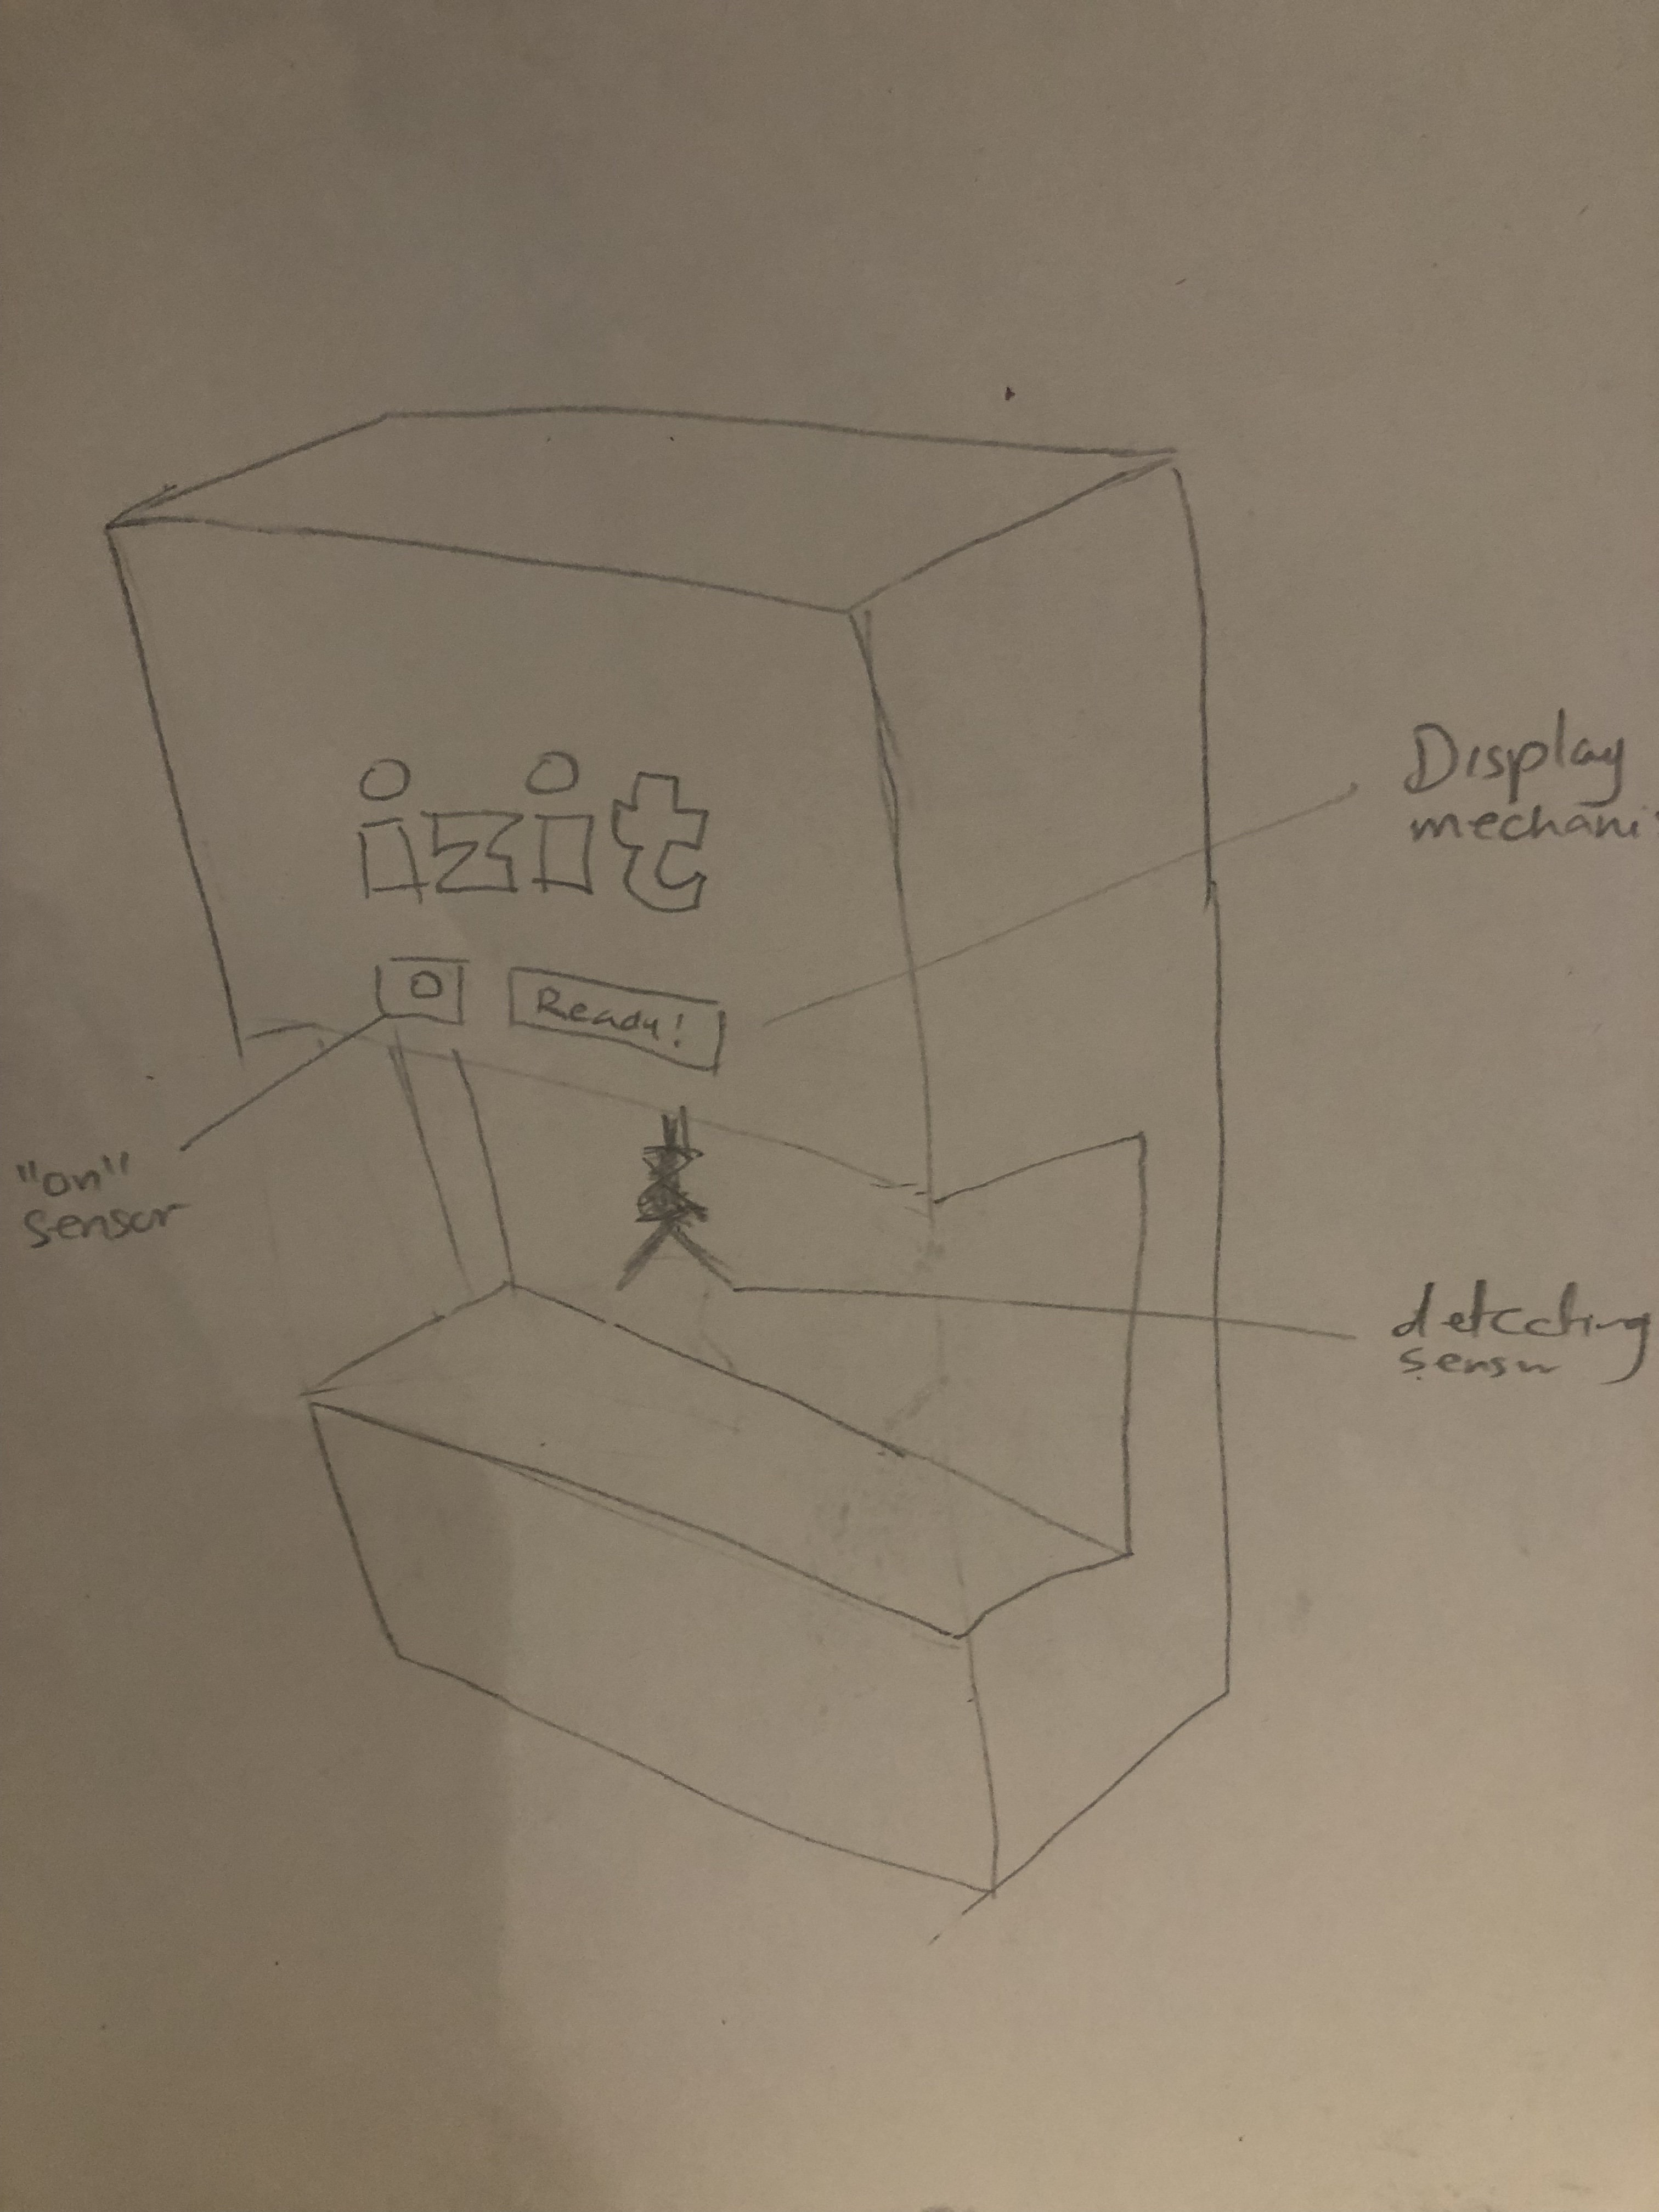 izit
Ready!
Display
mechani
"on"
sensor
detecting
sensor